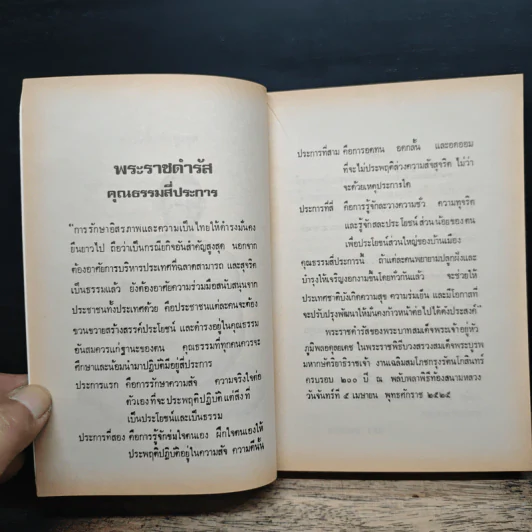 พระราชดำรัส
คุณธรรมสี่ประการ
"การรักษาอิสรภาพและความเป็นไทยให้ดำรงมั่นคง
ยืนยาวไป ถือว่าเป็นกรณียกิจอันสำคัญสูงสุด นอกจาก
ต้องอาศัยการบริหารประเทศที่ฉลาดสามารถ และสุจริต
เป็นธรรมแล้ว ยังต้องอาศัยความร่วมมือสนับสนุนจาก
ประชาชนทั้งประเทศด้วย คือประชาชนแต่ละคนจะต้อง
ขวนขวายสร้างสรรค์ประโยชน์ และดำรงอยู่ในคุณธรรม
อันสมควรแก่ฐานะของตน คุณธรรมที่ทุกคนควรจะ
ศึกษาและน้อมนำมาปฏิบัติมีอยู่สี่ประการ
ประการแรก คือการรักษาความสัจ ความจริงใจต่อ
ตัวเองที่จะ ประพฤติปฏิบัติ แต่สิ่งที่
เป็นประโยชน์และเป็นธรรม
ประการที่สอง คือการรู้จักข่มใจตนเอง ฝึกใจตนเองให้
ประพฤติปฏิบัติอยู่ในความสัจ ความดีนั้น
ประการที่สาม คือการอดทน อดกลั้น และอดออม
ที่จะไม่ประพฤติล่วงความสัจสุจริต ไม่ว่า
จะด้วยเหตุประการใด
ประการที่สี่ คือการรู้จักละวางความชั่ว ความทุจริต
และรู้จักสละประโยชน์ ส่วนน้อยของตน
เพื่อประโยชน์ส่วนใหญ่ของบ้านเมือง
คุณธรรมสี่ประการนี้ ถ้าแต่ละคนพยายามปลูกฝังและ
บำรุงให้เจริญงอกงามขึ้นโดยทั่วกันแล้ว จะช่วยให้
ประเทศชาติบังเกิดความสุข ความร่มเย็น และมีโอกาสที่
จะปรับปรุงพัฒนาให้มั่นคงก้าวหน้าต่อไปได้ดังประสงค์"
พระราชดำรัสของพระบาทสมเด็จพระเจ้าอยู่หัว
ภูมิพลอดุลยเดช ในพระราชพิธีบวงสรวงสมเด็จพระบูรพ
มหากษัตริยาธิราชเจ้า งานเฉลิมสมโภชกรุงรัตนโกสินทร์
ครบรอบ ๒๐๐ ปี ณ พลับพลาพิธีท้องสนามหลวง
วันจันทร์ที่ ๕ เมษายน พุทธศักราช ๒๕๒๕